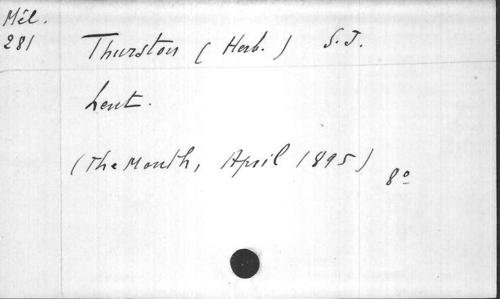 Mél.
281
Thurston (Herb.) S.J.
Lent.
(The Month, April 1895)
8°